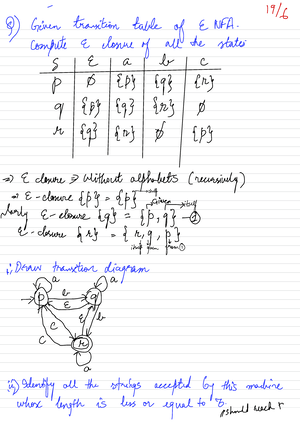 19/6
Q) Given transition table of E NFA.
Compute E closure of all the states
δ E a b c
p ∅ {p} {q} {r}
q {p} {q} {r} ∅
r {q} {r} ∅ {p}
⇒ E closure ⇒ Without alphabets (recursively)
⇒ E-closure {p} = {p} → itself
E-closure {q} = {p, q} → itself
E-closure {r} = {r, q, p}
itself from from ①
i) Draw transition diagram
a a
p b q
E
C C E b
r
a
ii) Identify all the strings accepted by this machine
whose length is less or equal to 3.
p should reach r